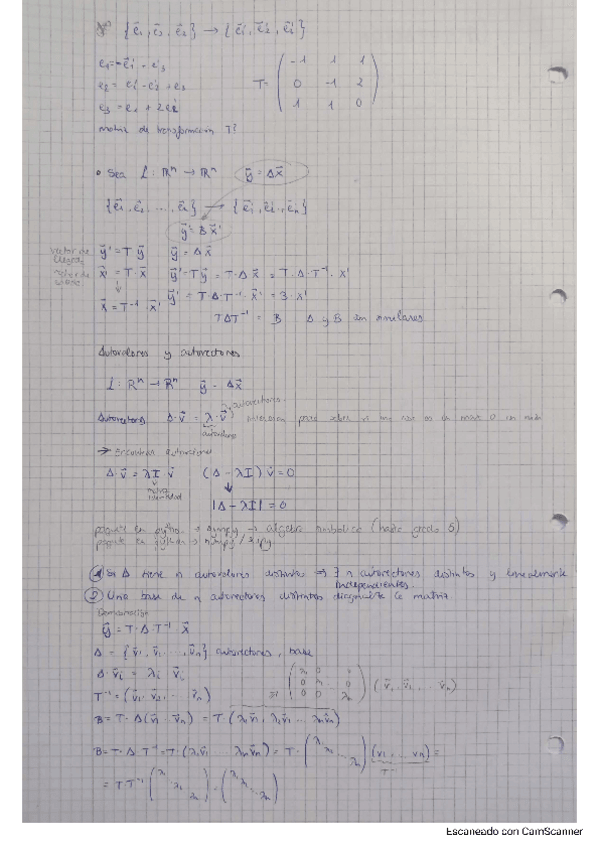 {e⃗₁, e⃗₂, e⃗₂} → {e⃗₁', e⃗₂', e⃗₂'}
e₁ = -e₁' - e₃
e₂ = e₁' - e₂' + e₃ T = ( -1 1 1
0 -1 2
1 1 0 )
e₃ = e₁ + 2e₂'
matriz de transformacion T?
• Sea L: ℝⁿ → ℝⁿ y⃗ = Ax⃗
{e⃗₁, e⃗₂, ..., e⃗₂} → {e⃗₁', e⃗₂', ... e⃗ₙ'}
y⃗' = B x⃗'
vector de
y⃗' = T y⃗ y⃗ = Ax⃗
x⃗' = T · x⃗ y⃗' = Ty⃗ = T · A x⃗ = T · A · T⁻¹ · x'
x⃗ = T⁻¹ x⃗' y⃗' = T · A · T⁻¹ · x⃗' = B · x'
TAT⁻¹ = B A y B son similares
Autovalores y autovectores
L: ℝⁿ → ℝⁿ y⃗ = Ax⃗
Autovectores A · v⃗ = λ · v⃗ autovectores
autovalores
→ Encontrar autovectores
A · v⃗ = λI · v⃗ (A - λI) v⃗ = 0
matriz
identidad
|A - λI| = 0
paquete en python → sympy → algebra simbolica (hasta grado 5)
paquete en python → numpy / scipy
① Si A tiene n autovalores distintos ⇒ ∃ n autovectores distintos y linealmente
independientes.
② Una base de n autovectores distintos diagonaliza la matriz.
Demostración
y⃗ = T · A · T⁻¹ x⃗
A = {v⃗₁, v⃗₂, ..., v⃗ₙ} autovectores, base
A · v⃗ᵢ = λᵢ v⃗ᵢ
T⁻¹ = (v⃗₁, v⃗₂, ... v⃗ₙ) ( λ₁ 0 0
0 λ₂ 0
0 0 λₙ ) (v⃗₁, v⃗₂, ... v⃗ₙ)
B = T · A (v⃗₁ ... v⃗ₙ) = T (λ₁v⃗₁, λ₂v⃗₂ ... λₙv⃗ₙ)
B = T · A T⁻¹ = T · (λ₁v⃗₁ ... λₙv⃗ₙ) = T · ( λ₁ λ₂ ... λₙ ) (v₁, ... vₙ) =
T⁻¹
= T T⁻¹ ( λ₁ λ₂ ... λₙ ) = ( λ₁ λ₂ ... λₙ )
Escaneado con CamScanner